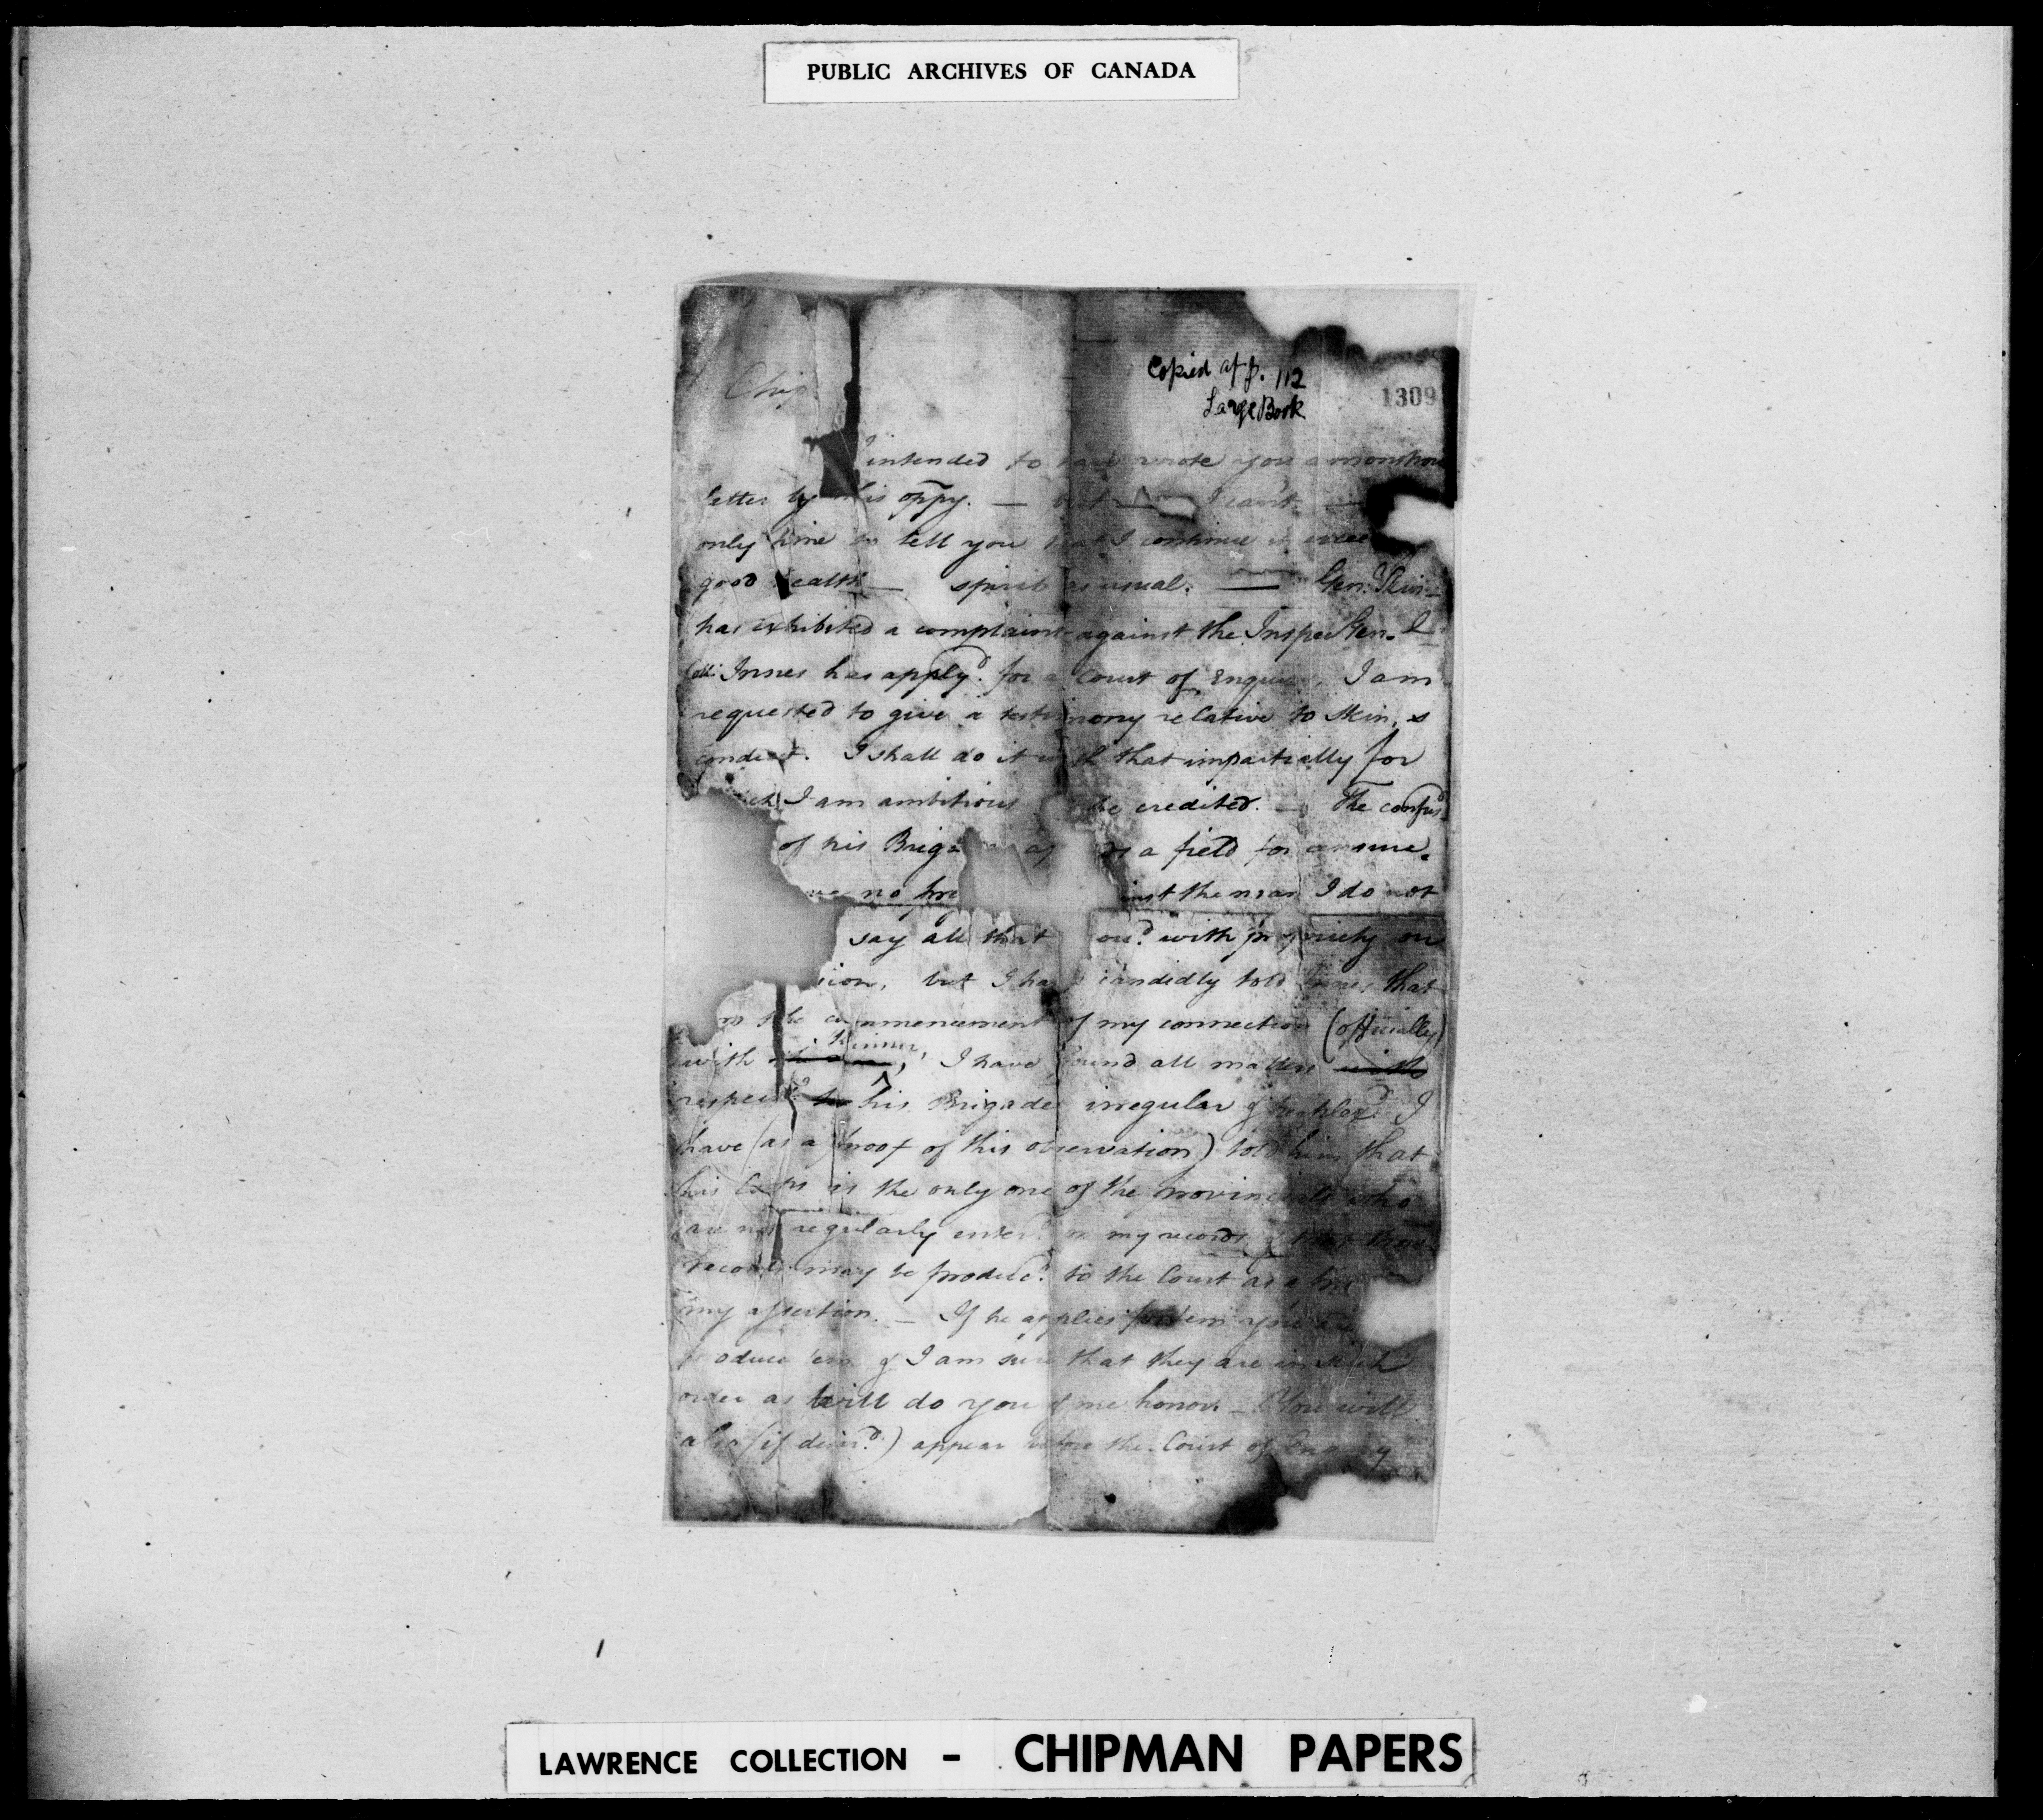 PUBLIC ARCHIVES OF CANADA
Copied at p. 112
Large Book
1309
Chip
I intended to have wrote you a monstrous
letter by this oppy. — but I can't —
only time to tell you that I continue in
good health — spirits as usual. — Genl. Skin-
has exhibited a complaint against the Inspec Gen. &
Coll. Innes has apply'd for a Court of Enquiry. I am
requested to give a testimony relative to Skin,s
conduct. I shall do it with that impartially for
which I am ambitious to be credited. — The confus'd
of his Briga a field for censure.
no pre inst the man I do not
say all that cou'd with propriety on
sion, but I have candidly told Innes that
from the commencement of my connection (officially)
with Skinner, I have found all matters with
respect to his Brigade irregular & perplex'd I
have (as a proof of this observation) told him that
his Corps is the only one of the provincials who
are not regularly enter'd in my records & that those
records may be produc'd to the Court as a
my assertion. — If he applies for 'em you
produce 'em & I am sure that they are in such
order as will do you & me honor. — You will
also (if desir'd) appear before the Court of Enquiry
LAWRENCE COLLECTION - CHIPMAN PAPERS